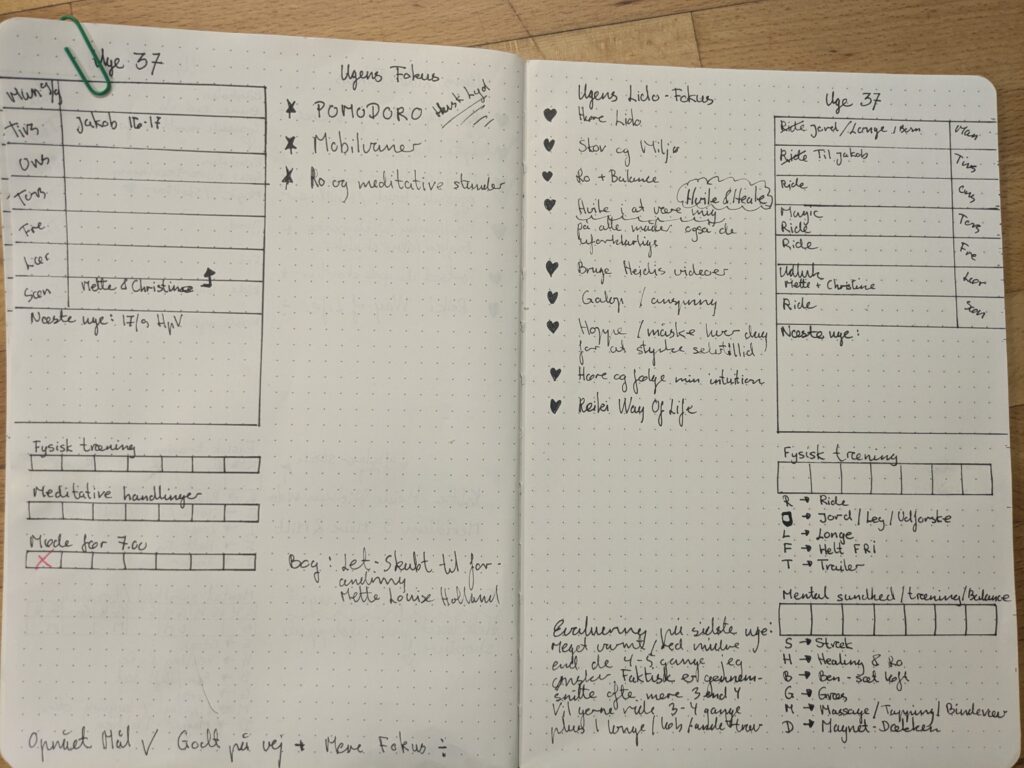 Uge 37
Man 9/9
Tirs Jakob 16-17
Ons
Tors
Fre
Lør
Søn Mette & Christine
Næste uge: 17/9 HpV
Fysisk træning
Meditative handlinger
Møde før 7.00
X
Ugens Fokus
POMODORO Husk Lyd
Mobilvaner
Ro og meditative stunder
Bog: Let-Skubt til for-
andring
Mette Louise Holland
Opnået Mål √ Godt på vej + Mere Fokus ÷
Ugens Lido-Fokus
Høre Lido
Stov og Miljø
Ro + Balance
Hvile & Heale
Hvile i at være mig
på alle måder også de
uforklarlige
Bruge Heidis videoer
Galop /
Hoppe / måske hver dag
for at styrke selvtillid
Høre og følge min intuition
Reiki Way Of Life
Evaluering på sidste uge:
Meget varme /
end de 4-5 gange jeg
ønsker. Faktisk er gennem-
snitte ofte mere 3 end 4
Vil gerne ride 3-4 gange
plus 1 longe /
Uge 37
Ride jord/Longe, Man
Ride Til Jakob Tirs
Ride Ons
Magic
Ride Tors
Ride Fre
Udtur
Mette + Christine Lør
Ride Søn
Næste uge:
Fysisk træning
R → Ride
→ Jord/Leg/Udforske
L → Longe
F → Helt FRI
T → Trailer
Mental sundhed/træning/Balance
S → Stræk
H → Healing & Ro
B → Ben - sæt løft
G → Græs
M → Massage/Tapping/Bindevæv
D → Magnet-Dækken